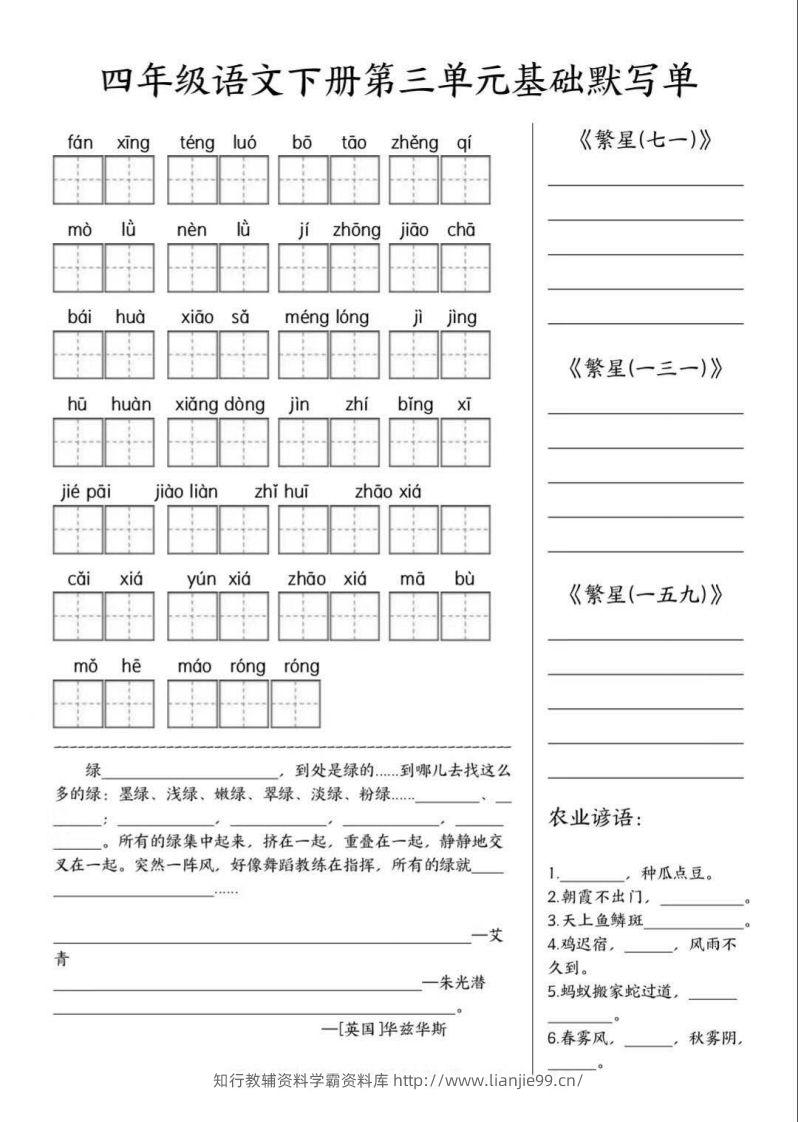 四年级语文下册第三单元基础默写单
fán xīng téng luó bō tāo zhěng qí
mò lǜ nèn lǜ jí zhōng jiāo chā
bái huà xiāo sǎ méng lóng jì jìng
hū huàn xiǎng dòng jìn zhí bǐng xī
jié pāi jiào liàn zhǐ huī zhāo xiá
cǎi xiá yún xiá zhāo xiá mā bù
mǒ hē máo róng róng
绿____________________，到处是绿的……到哪儿去找这么
多的绿：墨绿、浅绿、嫩绿、翠绿、淡绿、粉绿……________、__
______；____________，____________，____________，______
______。所有的绿集中起来，挤在一起，重叠在一起，静静地交
叉在一起。突然一阵风，好像舞蹈教练在指挥，所有的绿就____
____________________……
________________________________________—艾
青
____________________________________—朱光潜
________________________________________。
—[英国]华兹华斯
《繁星(七一)》
《繁星(一三一)》
《繁星(一五九)》
农业谚语：
1.________，种瓜点豆。
2.朝霞不出门，__________。
3.天上鱼鳞斑____________。
4.鸡迟宿，______，风雨不
久到。
5.蚂蚁搬家蛇过道，______
________。
6.春雾风，______，秋雾阴，
______。
知行教辅资料学霸资料库 http://www.lianjie99.cn/